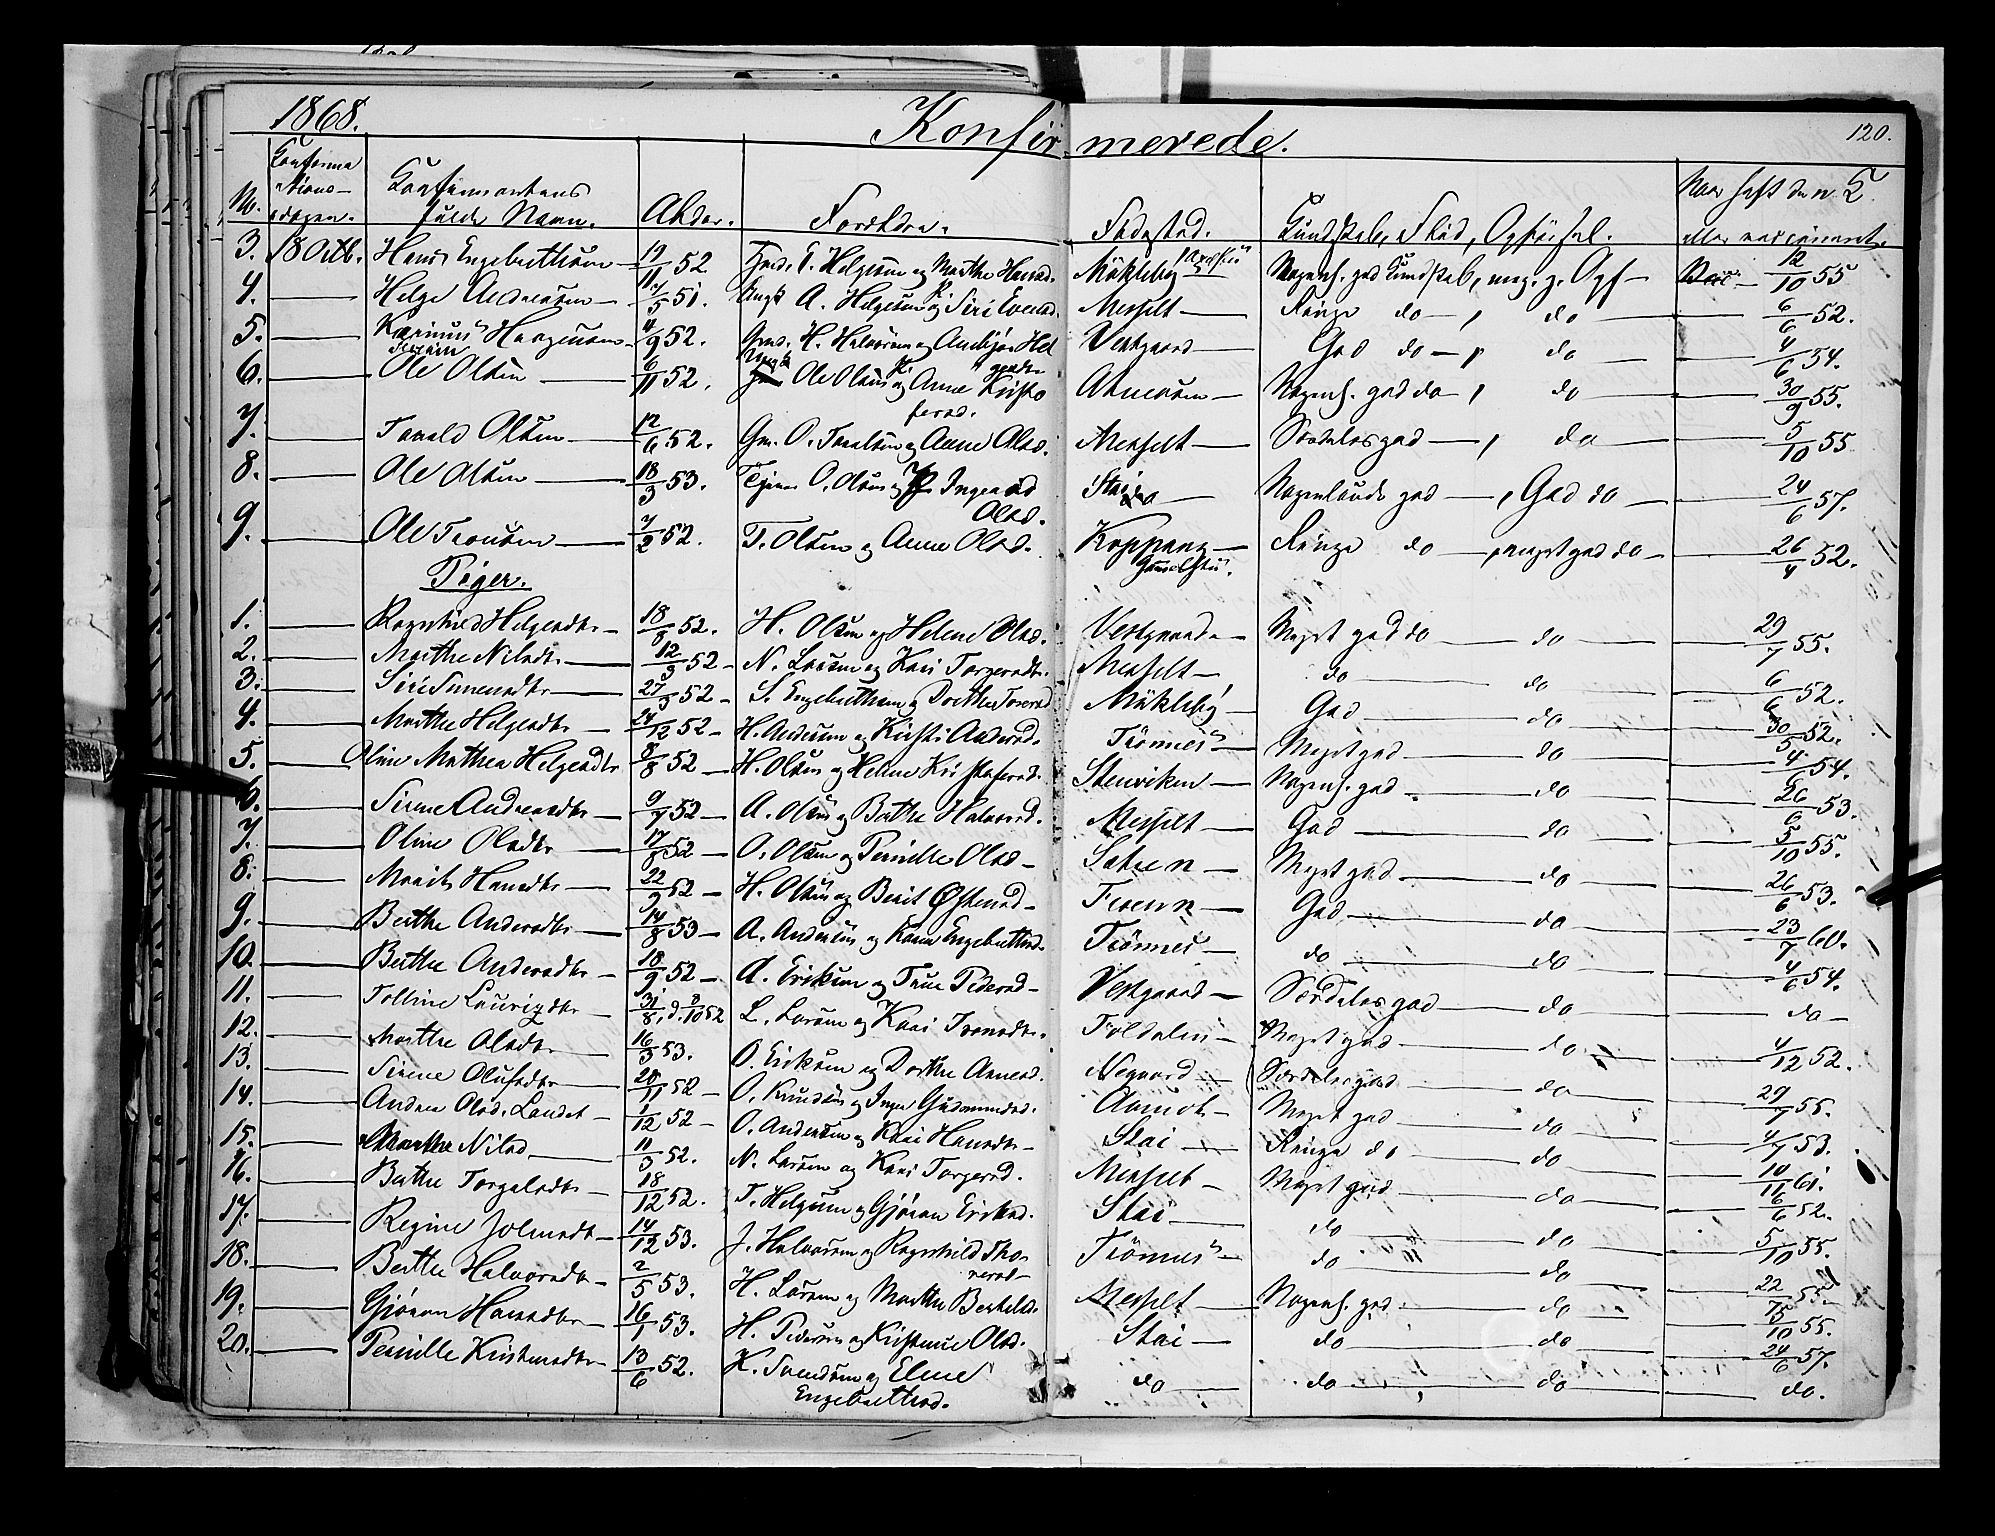 1868. Konfirmerede. 120.
No. Confirmationsdagen. Confirmantens fulde Navn. Alder. Forældre. Fødested. Kundskab, Flid, Opførsel. Naar havt den n. C. eller vaccineret.
3. 18 Octb. Hans Engebrethsen 19/11 52 E. Helgesen og Marthe Hansd. Mökleby Nogenl. god Kundskab, meg. g. Opf 12/10 55
4. Helge Andersen 7/5 51. A. Helgesen og Siri Evensd. Messelt Ringe do, do 6/6 52.
5. Haagensen 4/9 52. Gmd. H. Halvorsen og Vestgaard God do, do 4/6 54.
6. Ole Olsen 6/11 52. Ole Olsen og Anne Kristofersd. Nogenl. god do, do 30/9 55.
7. Tarald Olsen 12/6 52. Gm. O. Taralsen og Anne Olsd. Messelt Særdeles god, do 5/10 55
8. Ole Olsen 18/3 53. O. Olsen og Ingeborg Olsd. Stai Nogenlunde god, God do 24/6 57.
9. Ole Tronsen 7/2 52. T. Olsen og Anne Olsd. Koppang Ringe do, meget god do 26/4 52.
Piger.
1. Ragnhild Helgesdtr 18/8 52. H. Olsen og Helene Olsd. Vestgaard Meget god do do 29/7 55.
2. Marthe Nilsdtr 12/3 52 N. Larsen og Kari Torgersdtr. Messelt do do 6/6 52.
3. Siri Simensdtr 27/3 52 S. Engebrethsen og Dorthe Mökleby God do 30/5 52.
4. Marthe Helgesdtr 24/12 52 H. Andersen og Kirsti Andersd. Trönnes Meget god do 4/6 54.
5. Oline Mathea Helgesdtr 8/8 52 H. Olsen og Helene Kristofersd. Stenviken Nogenl. god do 26/6 53.
6. Sirene Andreasdtr 9/7 52 A. Olsen og Berthe Halvorsd. Messelt God do 5/10 55.
7. Oline Olsdtr 17/8 52 O. Olsen og Pernille Olsd Sætren Meget god do 26/6 53.
8. Marit Hansdtr 22/9 52 H. Olsen og Berit Østensd God do 23/7 60.
9. Berthe Andersdtr 14/8 53 A. Andersen og Karen Engebrethsd. Trönnes do do 4/6 54.
10. Berthe Andersdtr 18/9 52 A. Eriksen og Pedersd Vestgaard Særdeles god do do
11. Lauritzdtr 31/8, d. 8/10 52 L. Larsen og Kari Tronsdtr. Foldalen Meget god do 4/12 52.
12. Marthe Olsdtr 16/3 53. O. Eriksen og Dorthe Negaard Særdeles god do 29/7 55.
13. Sirene Olufsdtr 28/11 52 O. Knudsen og Inger Gudmundsd. Aamot Meget god do 4/7 53.
14. Andrea Olsd. 1/12 52 O. Andersen og Kari Hansdtr Stai Ringe do do 14/11 61.
15. Marthe Nilsd 11/3 52. N. Larsen og Kari Torgersd. Messelt Meget god do 6/6 52.
16. Berthe Torgalsdtr 18/12 52. T. Helgesen og Gjöran Eriksd. Stai do do 5/10 55.
17. Regine Jolmsdt 14/12 53. J. Halvorsen og Ragnhild Thorersd Trönnes do do 22/ 55
18. Berthe Halvorsdtr 2/5 53. H. Larsen og Marthe Bertelsd. Messelt Nogenl. god do 5/10 55.
19. Gjöran Hansdtr 16/1 53. H. Pedersen og Kirstine Olsd. Stai do do 24/6 57.
20. Pernille Kristensdtr 13/6 52. K. Svendsen og Eline Engebrethsd. do do do do.